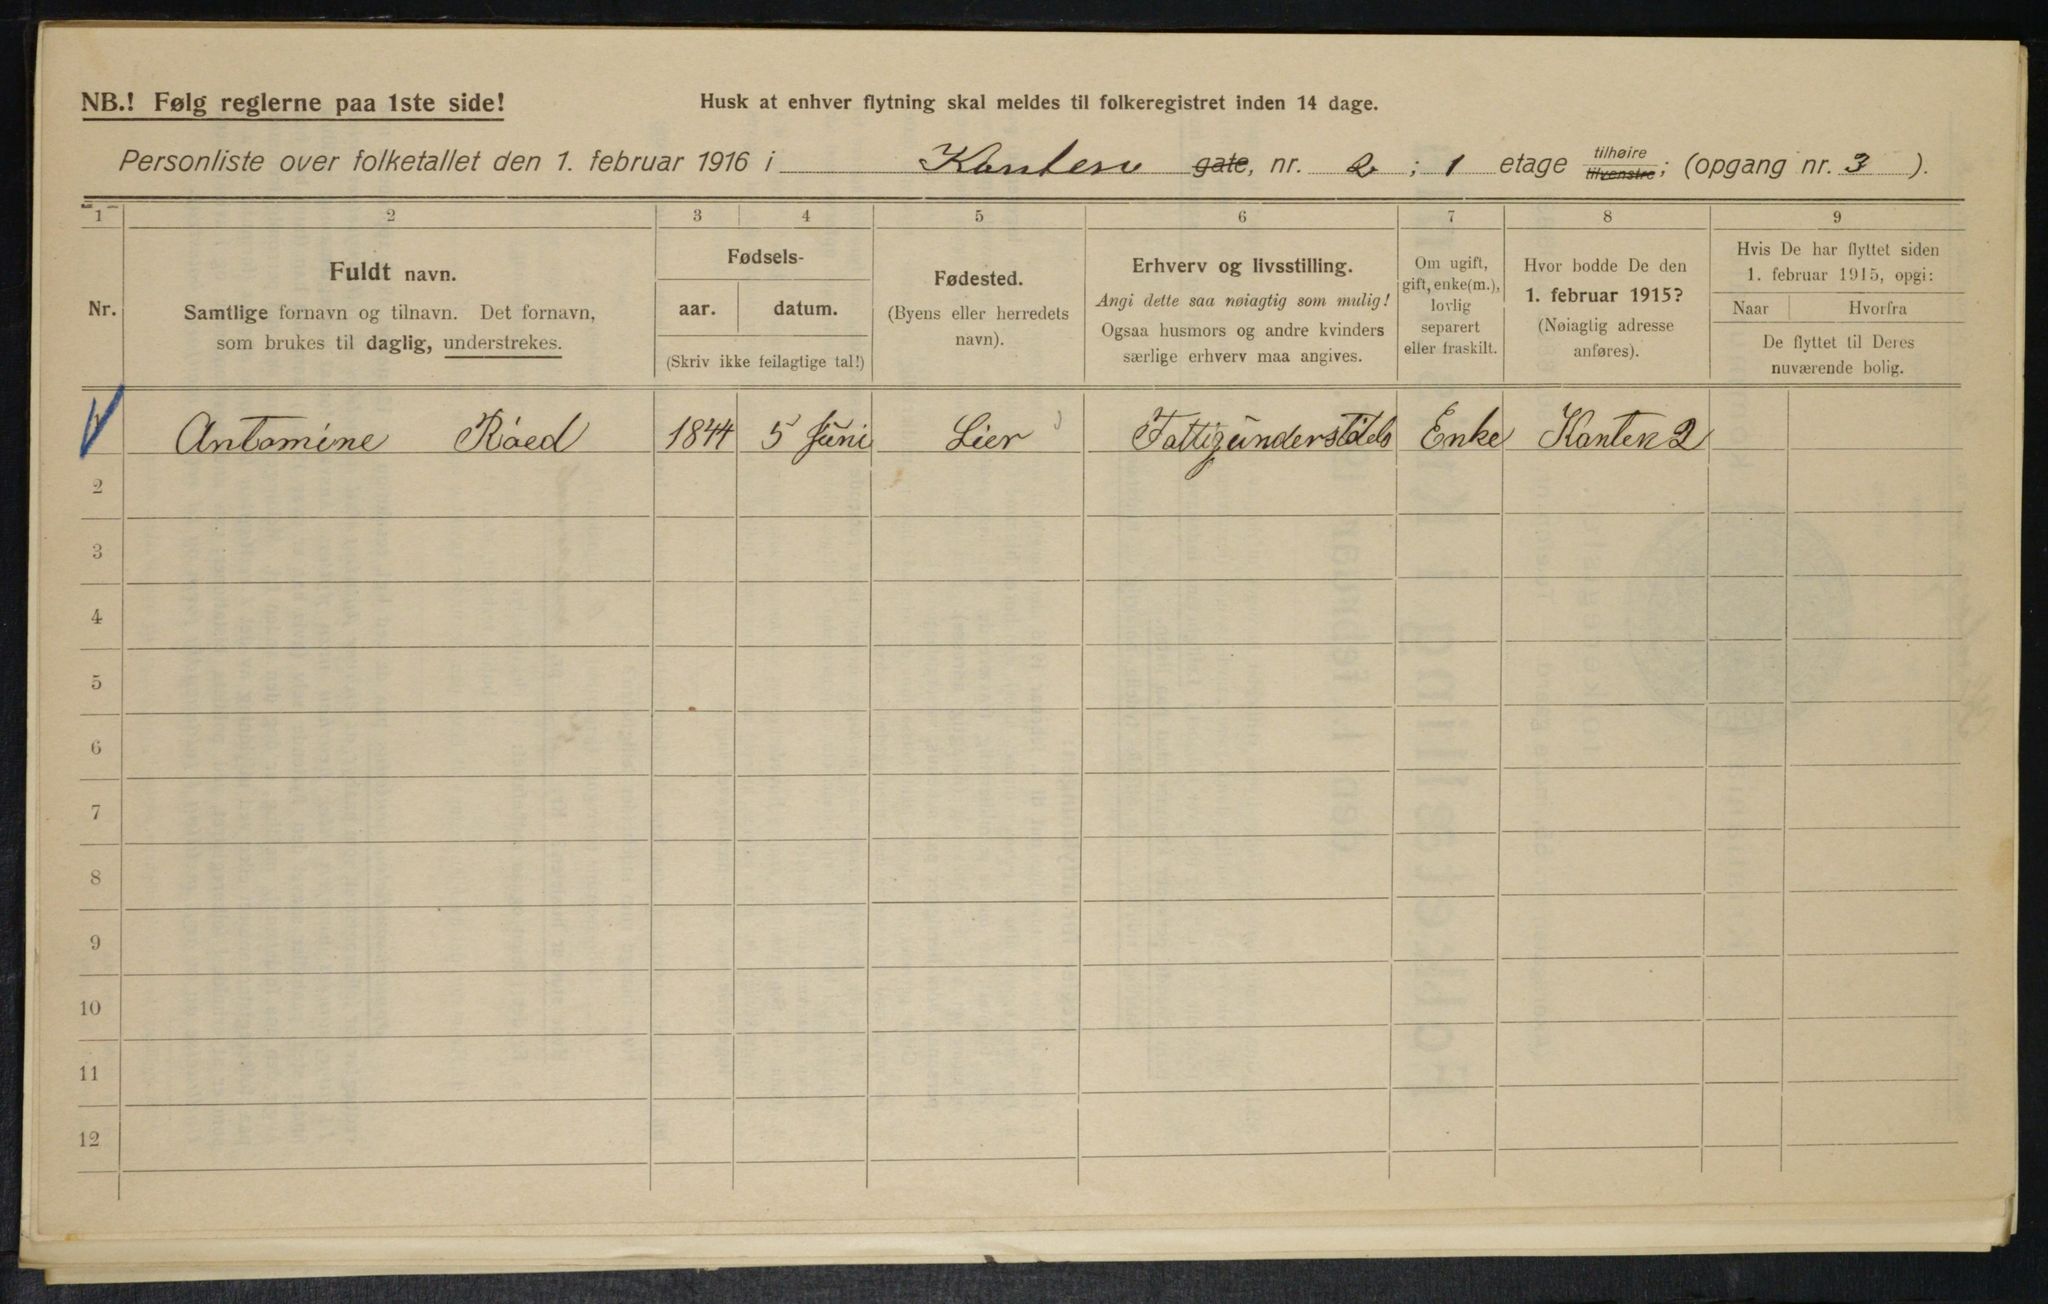 NB.! Følg reglerne paa 1ste side!
Husk at enhver flytning skal meldes til folkeregistret inden 14 dage.
Personliste over folketallet den 1. februar 1916 i Kanten gate, nr. 2 ; 1 etage tilhøire tilvenstre; (opgang nr. 3 ).
1 2 3 4 5 6 7 8 9
Nr.
Fuldt navn.
Samtlige fornavn og tilnavn. Det fornavn,
som brukes til daglig, understrekes.
Fødsels-
aar. datum.
(Skriv ikke feilagtige tal!)
Fødested.
(Byens eller herredets
navn).
Erhverv og livsstilling.
Angi dette saa nøiagtig som mulig!
Ogsaa husmors og andre kvinders
særlige erhverv maa angives.
Om ugift,
gift, enke(m.),
lovlig
separert
eller fraskilt.
Hvor bodde De den
1. februar 1915?
(Nøiagtig adresse
anføres).
Hvis De har flyttet siden
1. februar 1915, opgi:
Naar Hvorfra
De flyttet til Deres
nuværende bolig.
Antomine Röed 1844 5 Juni Lier Fattigünderstöels Enke Kanten 2
2
3
4
5
6
7
8
9
10
11
12